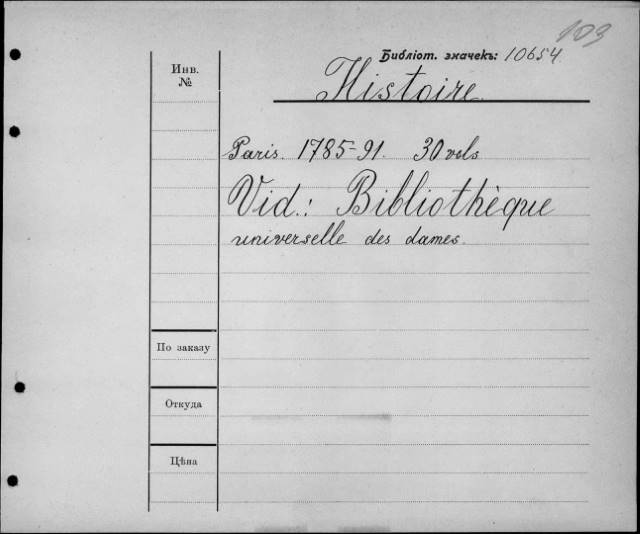 103
Библіот. значекъ: 10654
Инв.
№
Histoire.
Paris. 1785-91. 30 vols
Vid.: Bibliothèque
universelle des dames.
По заказу
Откуда
Цѣна